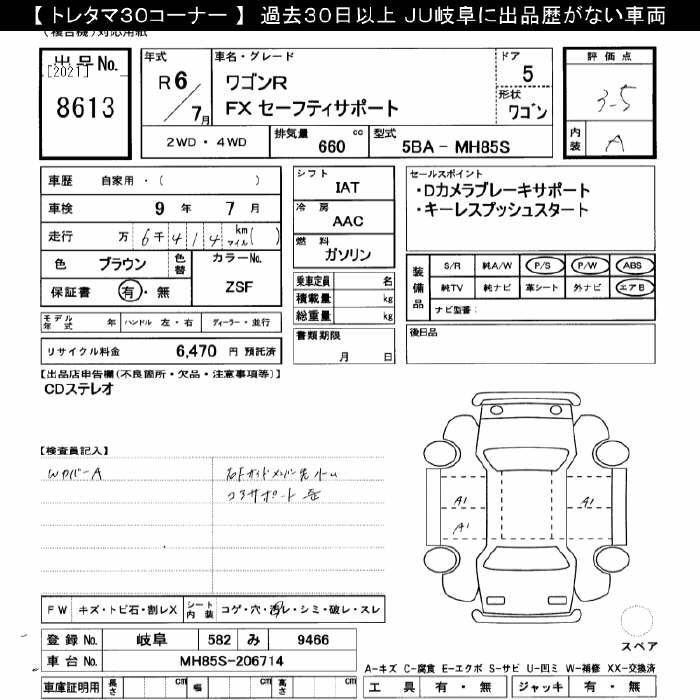 【 トレタマ30コーナー 】 過去30日以上 JU岐阜に出品歴がない車両
(複合機)対応用紙
出品No.
[2021]
8613
年式
R6/7月
車名・グレード
ワゴンR
FX セーフティサポート
ドア
5
形状
ワゴン
評価点
3-5
内装
A
2WD・4WD
排気量
660 cc
型式
5BA - MH85S
車歴 自家用・( )
車検 9年 7月
走行 万 6千 4 1 4 km マイル( )
色 ブラウン 色替
カラーNo.
ZSF
保証書 有・無
シフト
IAT
冷房
AAC
燃料
ガソリン
乗車定員 名
積載量 kg
総重量 kg
書類期限
月 日
セールスポイント
・Dカメラブレーキサポート
・キーレスプッシュスタート
装備品
S/R 純A/W P/S P/W ABS
純TV 純ナビ 革シート 外ナビ エアB
ナビ型番:
後日品
モデル年式 年 ハンドル 左・右 ディーラー・並行
リサイクル料金 6,470 円 預託済
【出品店申告欄(不良箇所・欠品・注意事項等)】
CDステレオ
【検査員記入】
Wカバー A
コアサポート
A1
A1
A1
FW キズ・トビ石・割レX シート内装 コゲ・穴・汚レ・シミ・破レ・スレ
登録No. 岐阜 582 み 9466
車台No. MH85S-206714
車庫証明用 長さ cm 幅 cm 高さ cm
スペア
A-キズ C-腐食 E-エクボ S-サビ U-凹ミ W-補修 XX-交換済
工具 有・無 ジャッキ 有・無